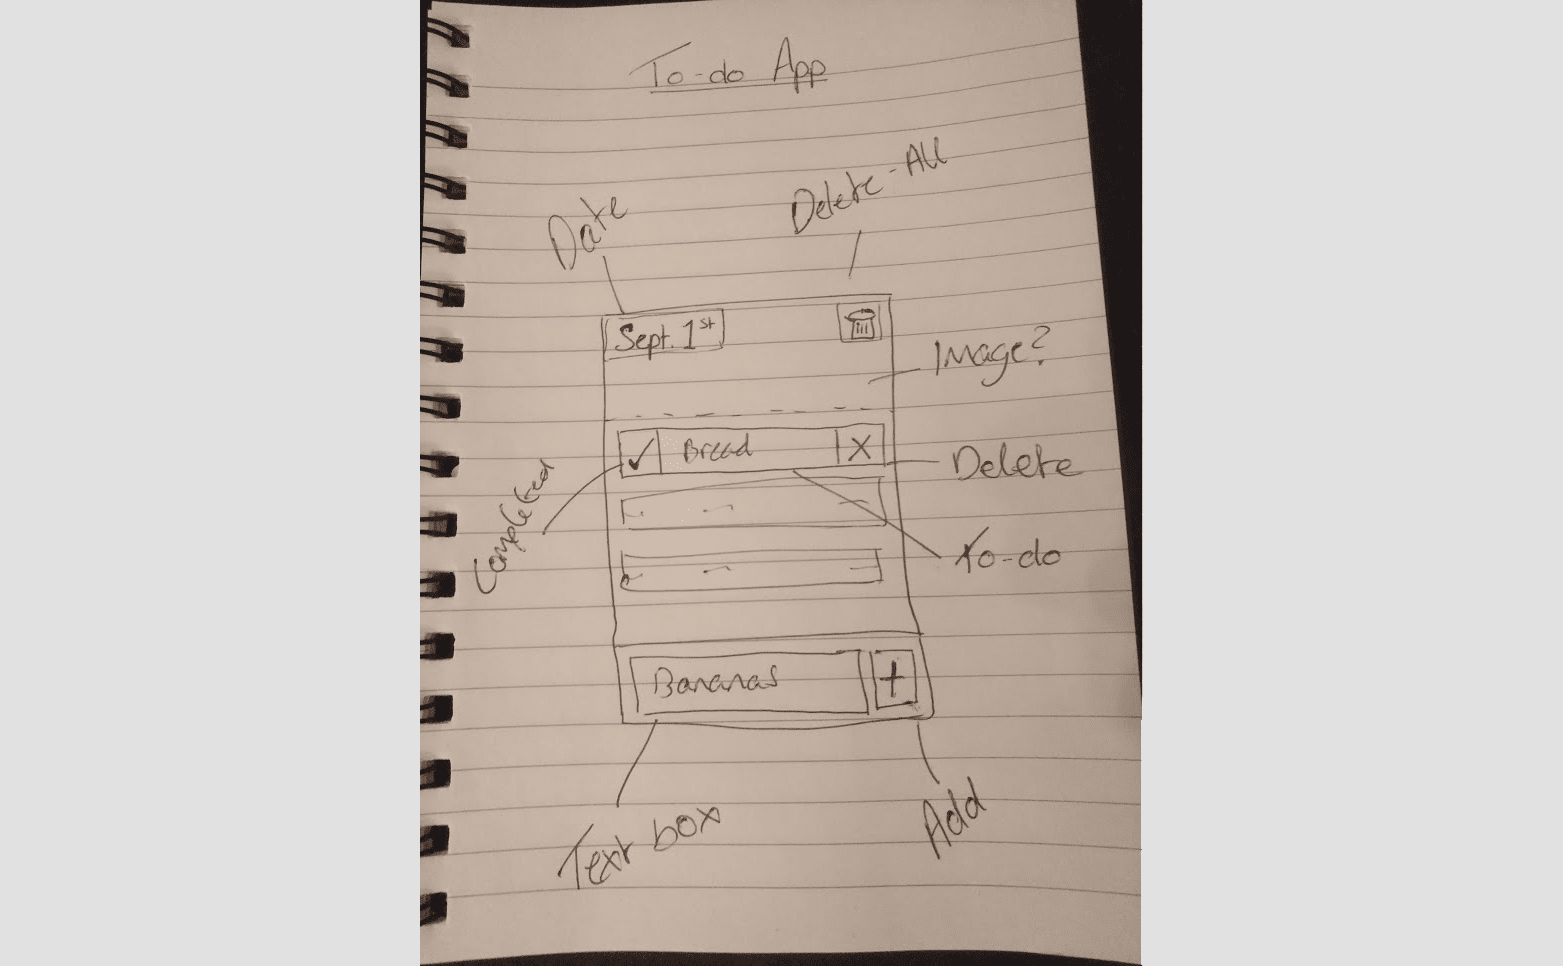 To-do App
Delete-All
Date
Sept. 1st
Image?
Bread
X
Delete
Completed
To-do
Bananas
+
Text box
Add